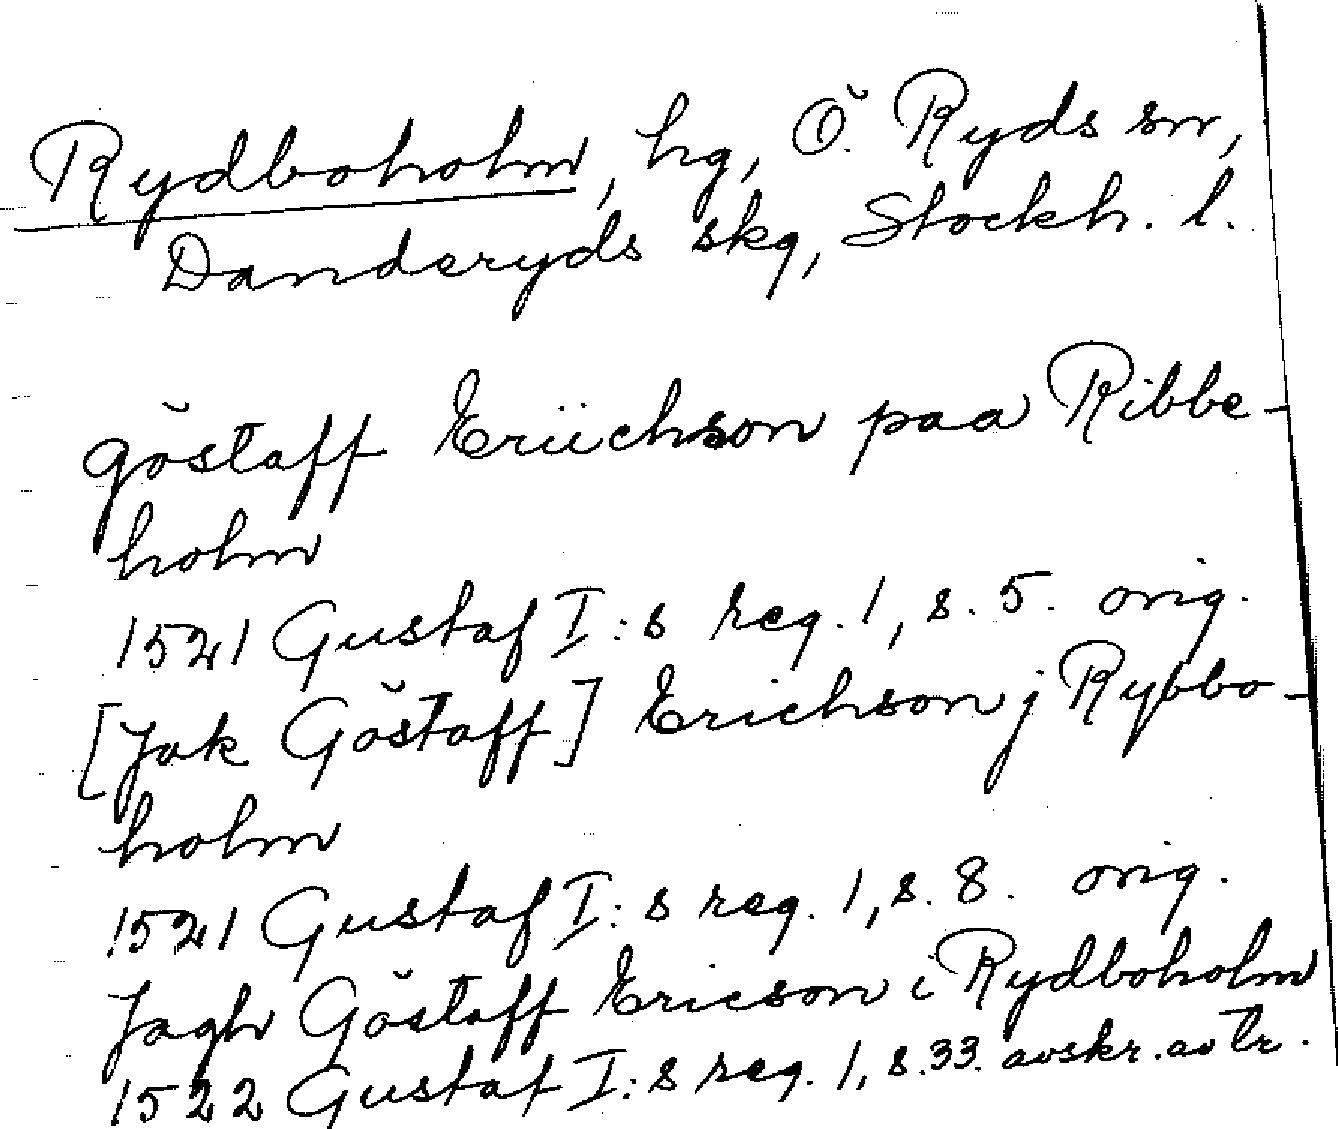 Rydboholm, hg, Ö. Ryds sn,
Danderyds skg, Stockh. l.
göstaff Eriichson paa Ribbe-
holm
1521 Gustaf I:s reg. 1, s. 5. orig.
[Jak Göstaff] Erichson j Rybbo-
holm
1521 Gustaf I:s reg. 1, s. 8. orig.
Jagh Göstaff Ericson i Rydboholm
1522 Gustaf I:s reg. 1, s. 33. avskr. av tr.